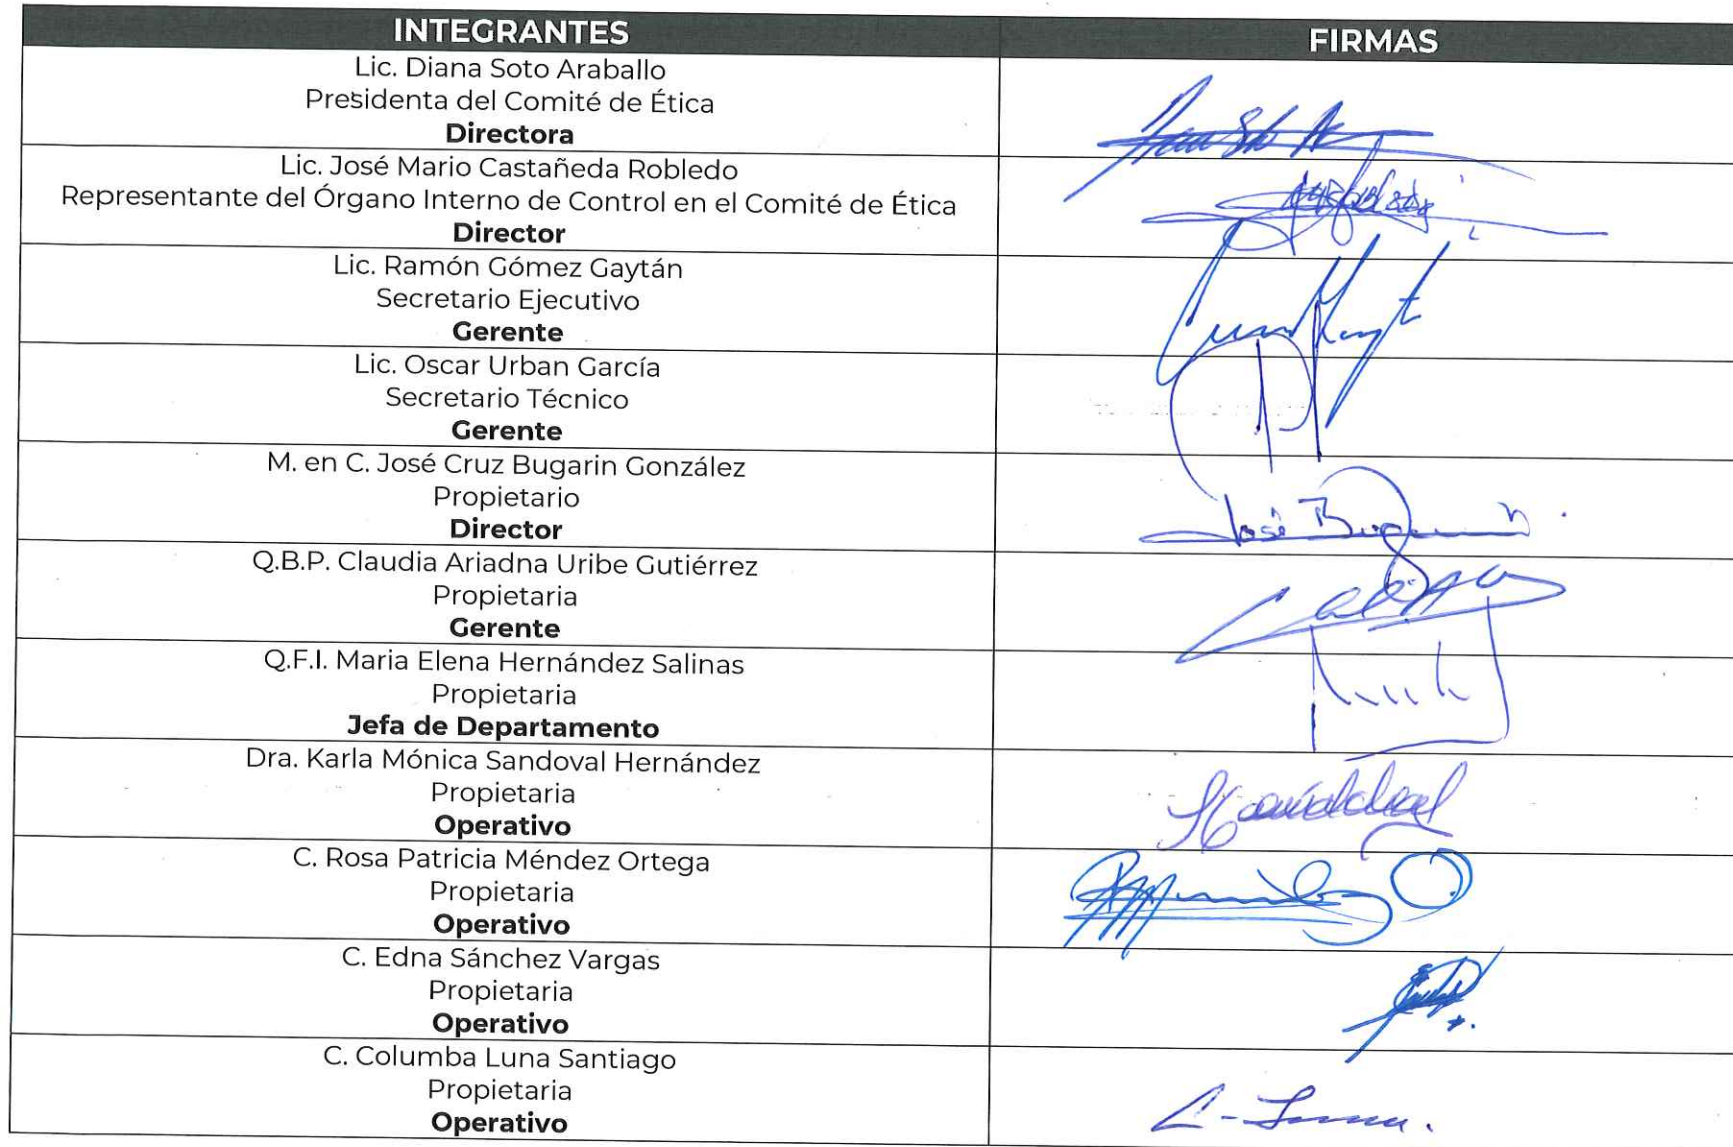 INTEGRANTES FIRMAS
Lic. Diana Soto Araballo
Presidenta del Comité de Ética
Directora
Lic. José Mario Castañeda Robledo
Representante del Órgano Interno de Control en el Comité de Ética
Director
Lic. Ramón Gómez Gaytán
Secretario Ejecutivo
Gerente
Lic. Oscar Urban García
Secretario Técnico
Gerente
M. en C. José Cruz Bugarin González
Propietario
Director
José Bugarin
Q.B.P. Claudia Ariadna Uribe Gutiérrez
Propietaria
Gerente
Q.F.I. Maria Elena Hernández Salinas
Propietaria
Jefa de Departamento
Dra. Karla Mónica Sandoval Hernández
Propietaria
Operativo
C. Rosa Patricia Méndez Ortega
Propietaria
Operativo
C. Edna Sánchez Vargas
Propietaria
Operativo
C. Columba Luna Santiago
Propietaria
Operativo